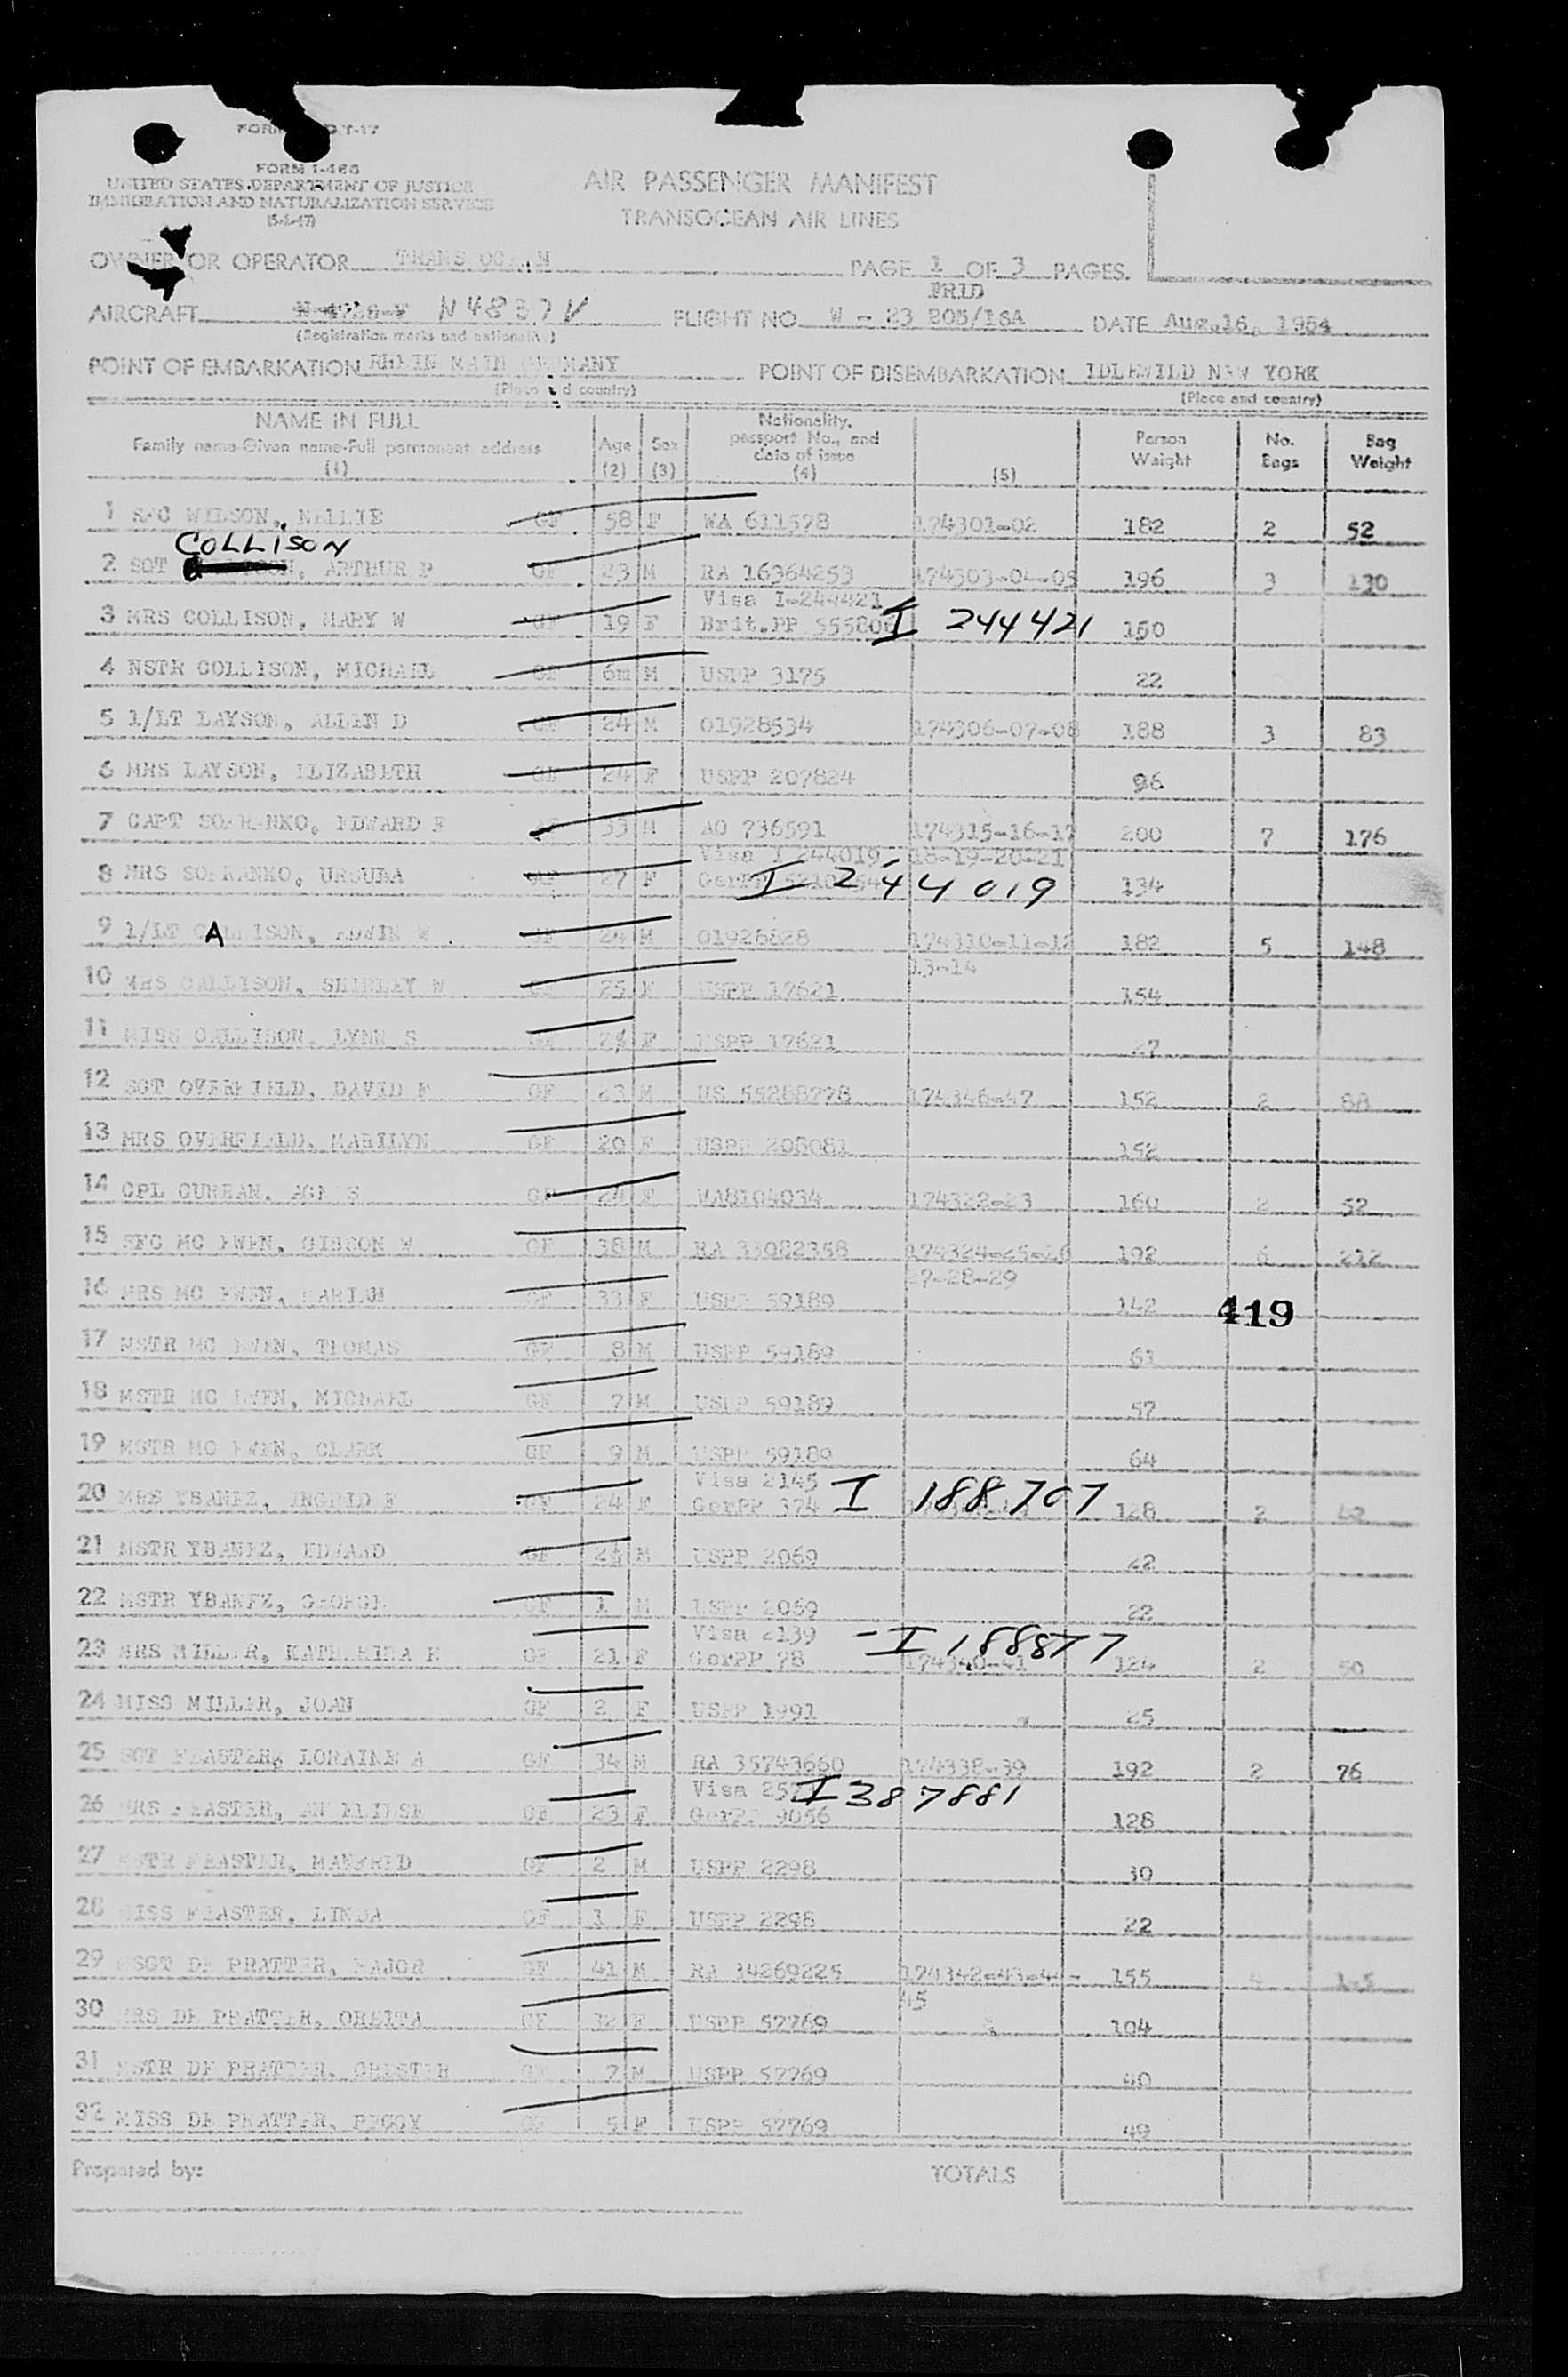 FORM T-17
FORM I-466
UNITED STATES DEPARTMENT OF JUSTICE
IMMIGRATION AND NATURALIZATION SERVICE
(5-1-47)
AIR PASSENGER MANIFEST
TRANSOCEAN AIR LINES
OWNER OR OPERATOR TRANS OCEAN PAGE 1 OF 3 PAGES.
AIRCRAFT N4837V FLIGHT NO. W - 23 FRID 205/16A DATE Aug. 16, 1954
(Registration marks and nationality)
POINT OF EMBARKATION RHEIN MAIN GERMANY POINT OF DISEMBARKATION IDLEWILD NEW YORK
(Place and country) (Place and country)
NAME IN FULL Family name-Given name-Full permanent address (1) Age (2) Sex (3) Nationality, passport No., and date of issue (4) (5) Person Weight No. Bags Bag Weight
1 SFC WILSON, NELLIE GF 58 F WA 611578 174301-02 182 2 52
2 SGT COLLISON, ARTHUR P GF 23 M RA 16364253 174303-04-05 196 3 130
Visa I-244421
3 MRS COLLISON, MARY W GF 19 F Brit.PP I 244421 150
4 NSTR COLLISON, MICHAEL GF 6m M USPP 3175 22
5 1/LT LAYSON, ALLEN D GF 24 M 01928534 174306-07-08 188 3 83
6 MRS LAYSON, ELIZABETH GF 24 F USPP 207824 96
7 CAPT SOFRANKO, EDWARD F GF 33 M AO 736591 174315-16-17 200 7 176
Visa I 244019 18-19-20-21
8 MRS SOFRANKO, URSULA GF 27 F GerPP I 244019 134
9 1/LT CALLISON, EDWIN W GF 24 M 01926828 174310-11-12 182 5 148
13-14
10 MRS CALLISON, SHIRLEY W GF 25 F USPP 17621 154
11 MISS CALLISON, LYNN S GF F USPP 17621 27
12 SGT OVERFIELD, DAVID F GF 23 M US 55288778 174346-47 152 2 88
13 MRS OVERFIELD, MARILYN GF 20 F USPP 208081 152
14 CPL CURRAN, AGNES GF 24 F WA8104034 174322-23 160 2 52
15 SFC MC EWEN, GIBSON W GF 38 M RA 33082358 174324-25-26 192 6 212
27-28-29
16 MRS MC EWEN, MARIAN GF 33 F USPP 59189 142
419
17 MSTR MC EWEN, THOMAS GF 8 M USPP 59189 61
18 MSTR MC EWEN, MICHAEL GF 7 M USPP 59189 57
19 MSTR MC EWEN, CLARK GF 9 M USPP 59189 64
Visa 2145
20 MRS YBANEZ, INGRID E GF 24 F GerPP 374 I 188707 128 2
21 MSTR YBANEZ, EDWARD GF 2½ M USPP 2069 22
22 MSTR YBANEZ, GEORGE GF 1 M USPP 2069 22
Visa 2139
23 MRS MILLER, KATHERINA E GF 21 F GerPP 78 - I 188877 174340-41 124 2 50
24 MISS MILLER, JOAN GF 2 F USPP 1991 25
25 SGT FEASTER, LORAINE A GF 34 M RA 35743660 174338-39 192 2 76
Visa I 387881
26 MRS FEASTER, GF 23 F GerPP 9056 128
27 MSTR FEASTER, MANFRED GF 2 M USPP 2298 30
28 MISS FEASTER, LINDA GF 1 F USPP 2298 22
29 MSGT DE PRATTER, MAJOR GF 41 M RA 34269225 174342-43-44- 155 4
45
30 MRS DE PRATTER, OREITA GF 32 F USPP 57769 104
31 MSTR DE PRATTER, CHESTER GF 7 M USPP 57769 40
32 MISS DE PRATTER, PEGGY GF 5 F USPP 57769 49
Prepared by: TOTALS